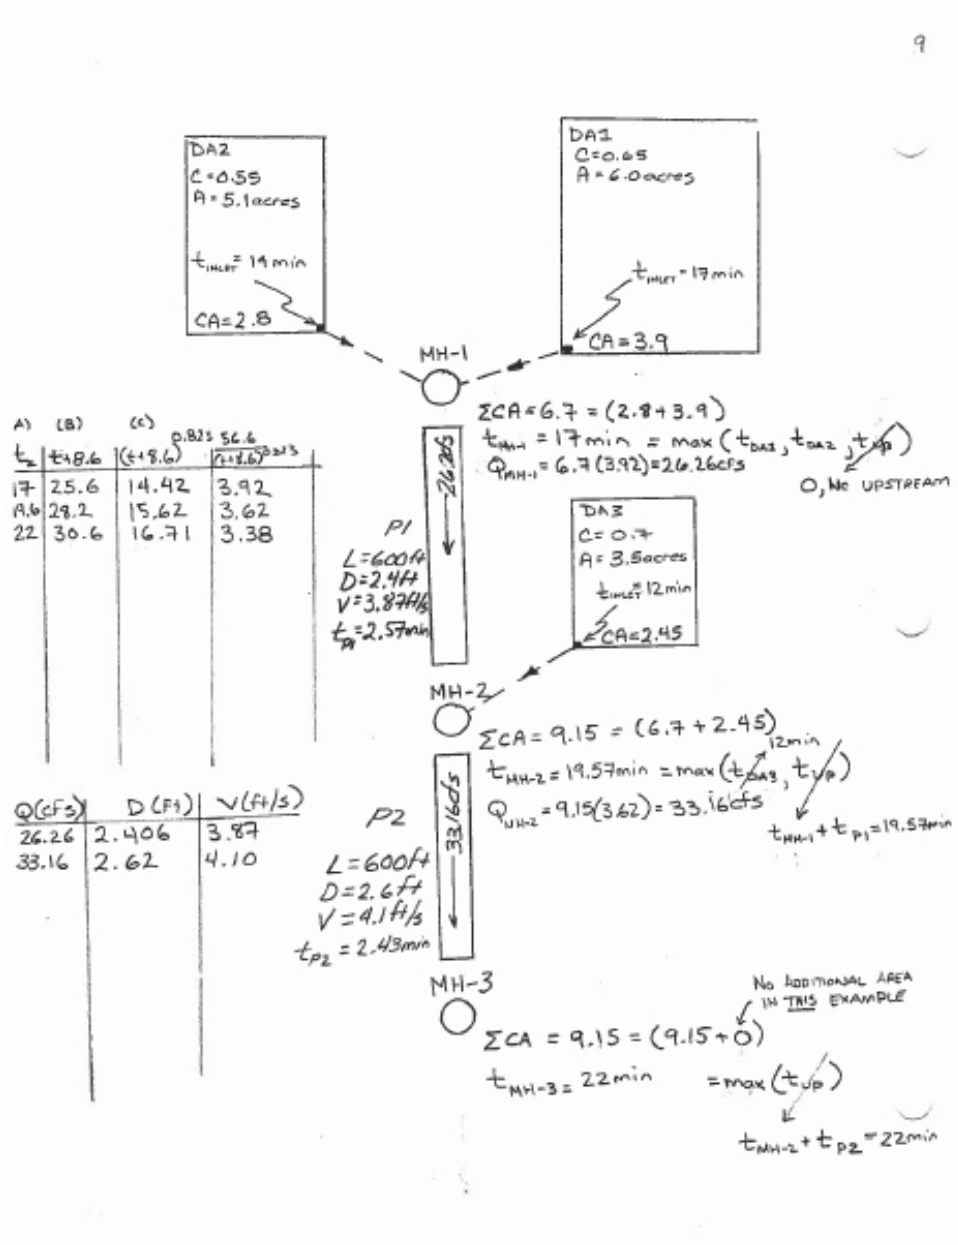 9
DA2
C=0.55
A=5.1acres
t INLET = 14min
CA=2.8
DA1
C=0.65
A=6.0acres
t INLET = 17min
CA=3.9
MH-1
ΣCA=6.7 = (2.8+3.9)
t MH-1 = 17min = max(t DA1, t DA2, t UP)
Q MH-1 = 6.7(3.92)=26.26cfs
0, No UPSTREAM
A) (B) (C)
t t+8.6 (t+8.6)^0.825 56.6/(t+8.6)^0.825
17 25.6 14.42 3.92
19.6 28.2 15.62 3.62
22 30.6 16.71 3.38
P1
L=600ft
D=2.4ft
V=3.87ft/s
t P1=2.57min
DA3
C=0.7
A=3.5acres
t INLET = 12min
CA=2.45
MH-2
ΣCA=9.15 = (6.7+2.45)
12min
t MH-2 = 19.57min = max(t DA3, t UP)
Q MH-2 = 9.15(3.62)= 33.16cfs
t MH-1 + t P1 = 19.57min
Q(cfs) D(Ft) V(ft/s)
26.26 2.406 3.87
33.16 2.62 4.10
P2
33.16cfs
L=600ft
D=2.6ft
V=4.1ft/s
t P2 = 2.43min
MH-3
No ADDITIONAL AREA
IN THIS EXAMPLE
ΣCA = 9.15 = (9.15+0)
t MH-3 = 22min = max(t UP)
t MH-2 + t P2 = 22min